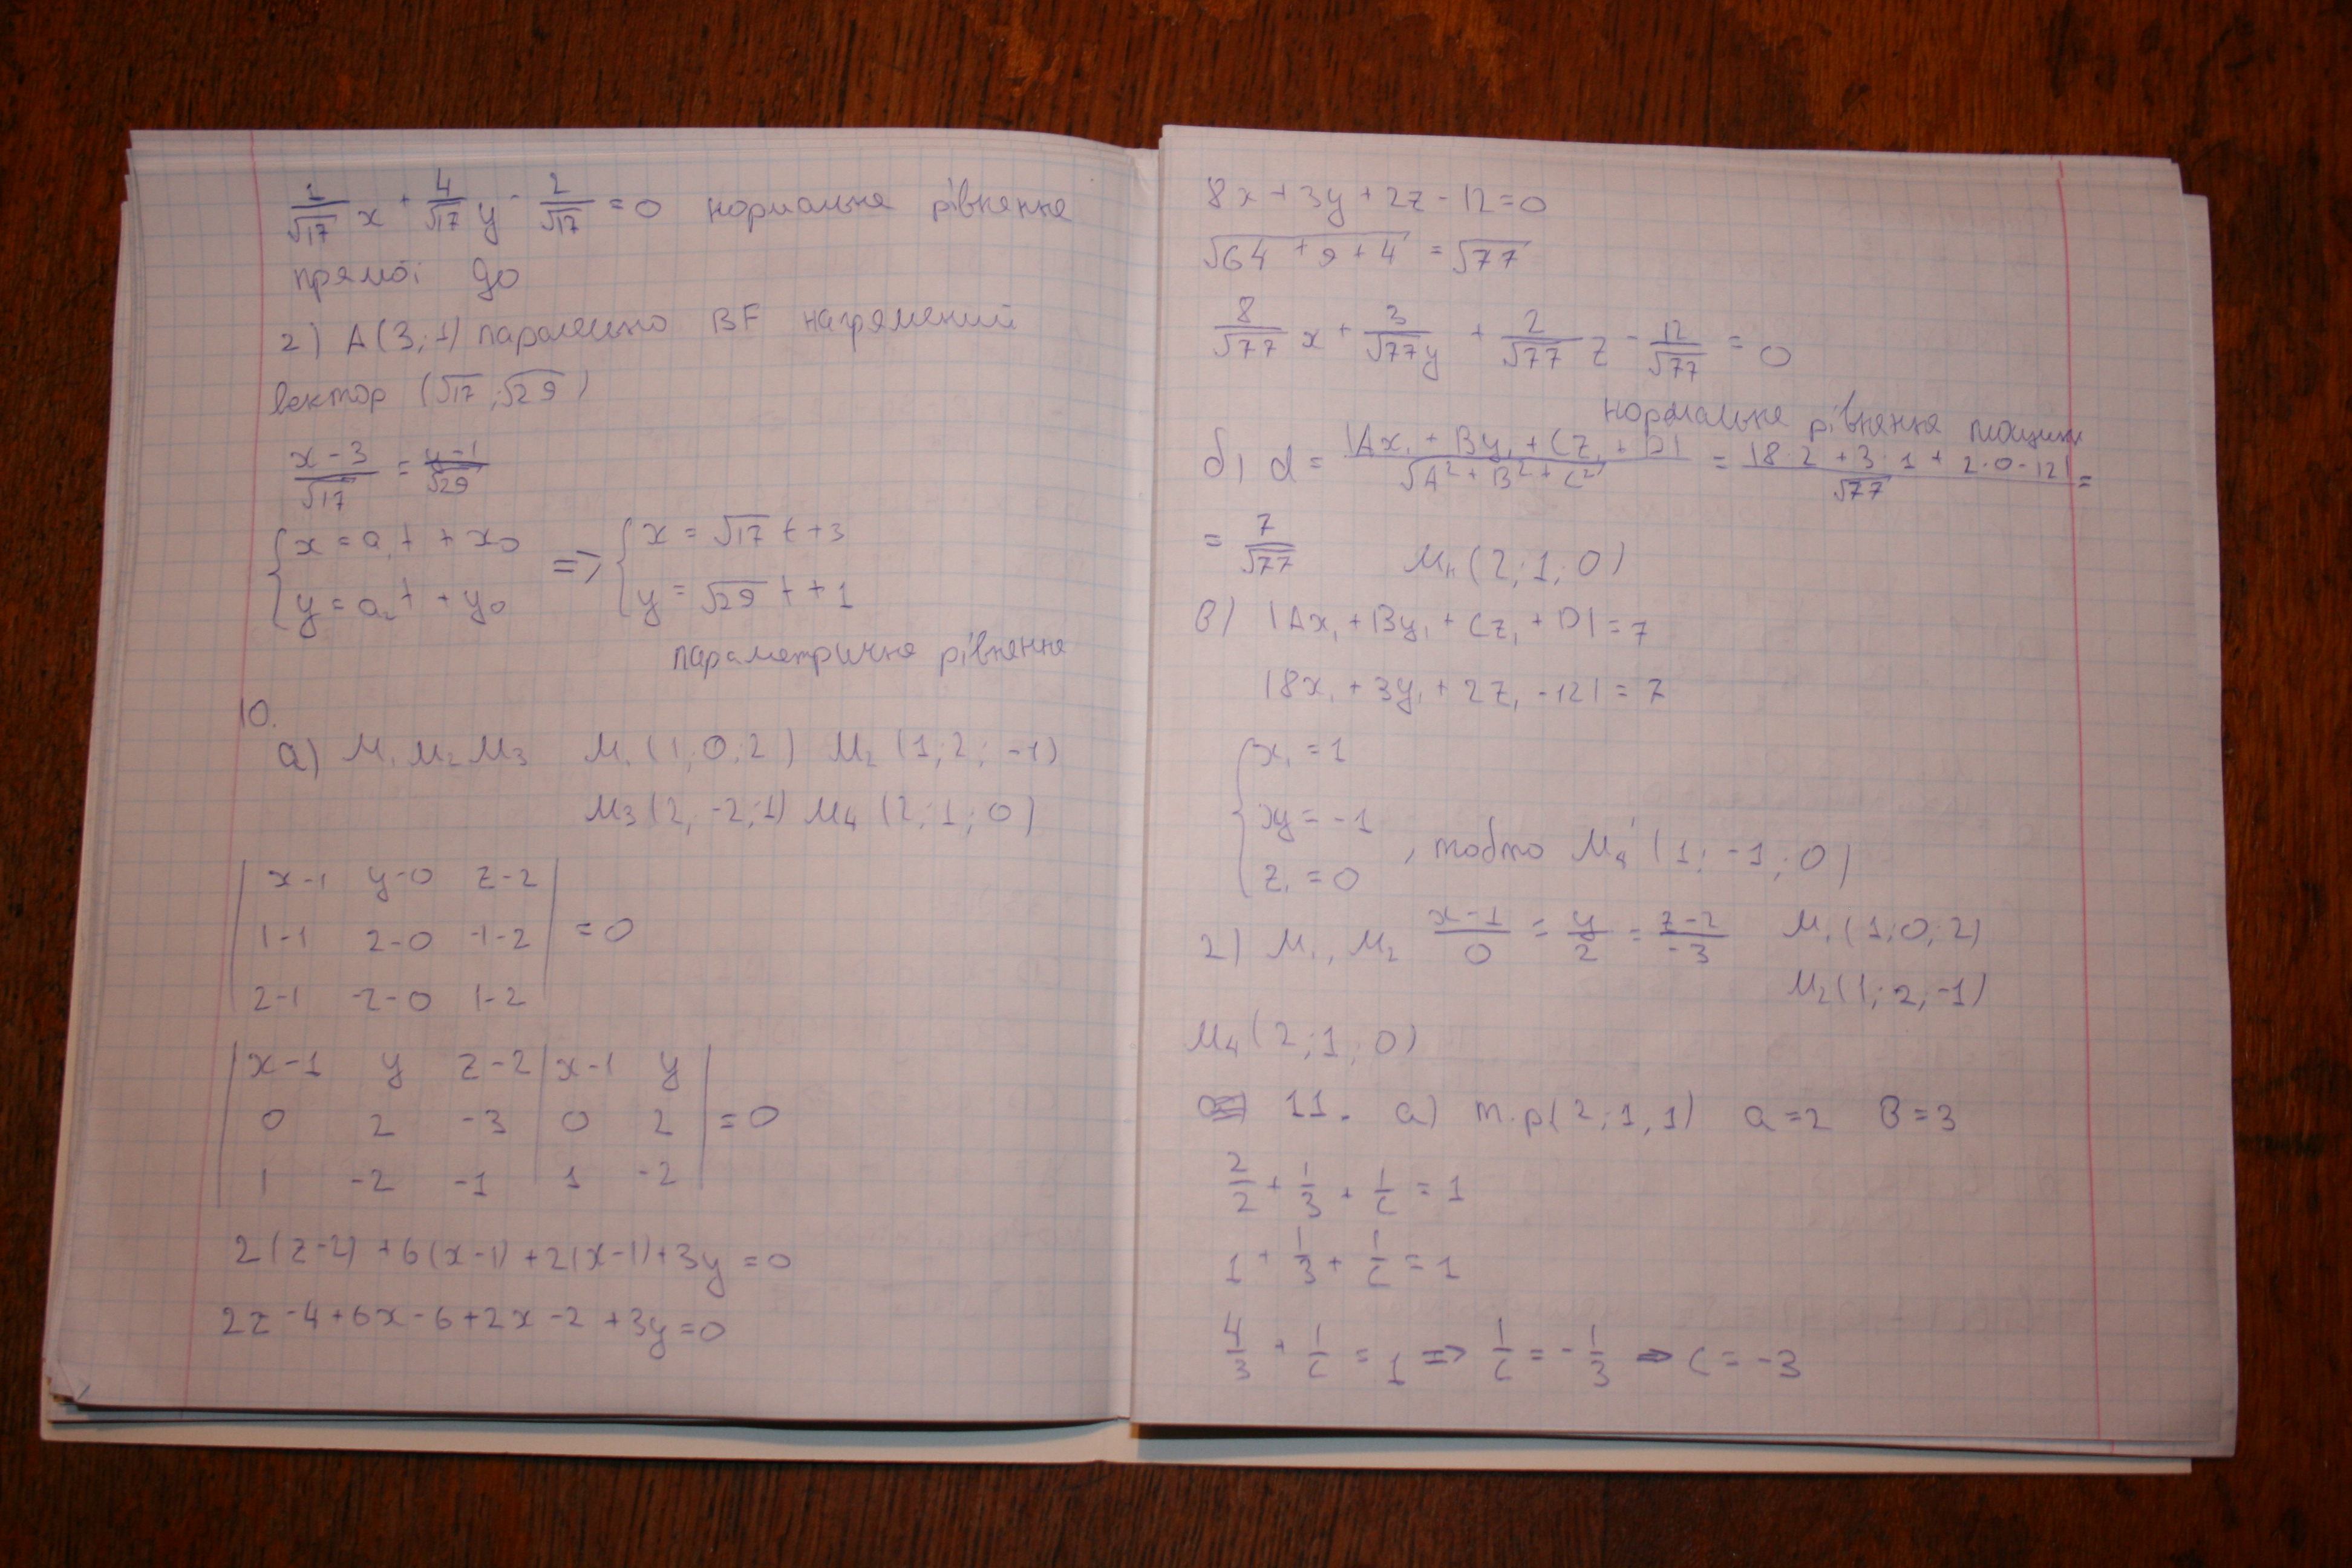 1/√17 x + 4/√17 y - 2/√17 = 0 нормальне рівняння
прямої до
2) A(3;1) паралельно BF напрямений
вектор (√17;√29)
x-3/√17 = y-1/√29
{x = a₁t + x₀ => {x = √17 t + 3
{y = a₂t + y₀ {y = √29 t + 1
параметричне рівняння
10.
а) M₁ M₂ M₃ M₁(1;0;2) M₂(1;2;-1)
M₃(2;-2;1) M₄(2;1;0)
|x-1 y-0 z-2|
|1-1 2-0 -1-2| = 0
|2-1 -2-0 1-2|
|x-1 y z-2|x-1 y|
|0 2 -3|0 2| = 0
|1 -2 -1|1 -2|
2(z-2)+6(x-1)+2(x-1)+3y=0
2z-4+6x-6+2x-2+3y=0
8x+3y+2z-12=0
√64+9+4 = √77
8/√77 x + 3/√77 y + 2/√77 z - 12/√77 = 0
нормальне рівняння площини
б) d = |Ax₁+By₁+Cz₁+D|/√A²+B²+C² = |8·2+3·1+2·0-12|/√77 =
= 7/√77 M₄(2;1;0)
в) |Ax₁+By₁+Cz₁+D|=7
|8x₁+3y₁+2z₁-12|=7
{x₁=1
{xy=-1
{z₁=0 , тобто M₄'(1;-1;0)
г) M₁, M₂ x-1/0 = y/2 = z-2/-3 M₁(1;0;2)
M₂(1;2;-1)
M₄(2;1;0)
11. а) т.p(2;1;1) a=2 в=3
2/2 + 1/3 + 1/c = 1
1 + 1/3 + 1/c = 1
4/3 + 1/c = 1 => 1/c = -1/3 => c = -3